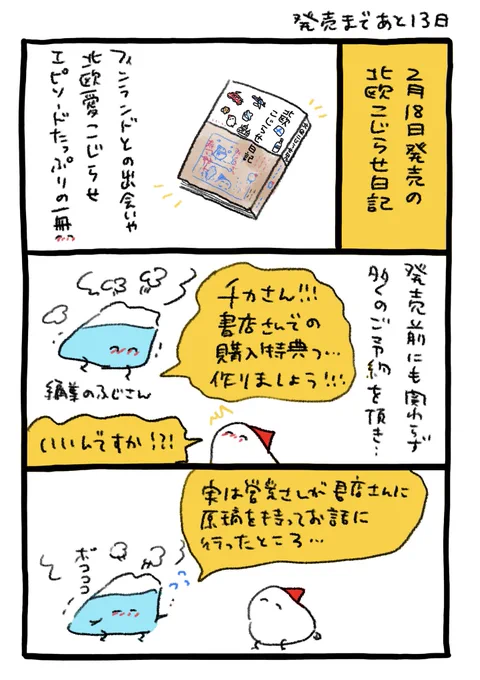 発売まであと13日
2月18日発売の
北欧こじらせ日記
北欧
こじらせ
日記
フィンランドとの出会いや
北欧愛こじらせ
エピソードたっぷりの一冊
発売前にも関わらず
多くのご予約を頂き…
チカさん!!!
書店さんでの
購入特典っ…
作りましょう!!!
編集のふじさん
いいんですか!?!
実は営業さんが書店さんに
原稿を持ってお話に
行ったところ…
ボコココ